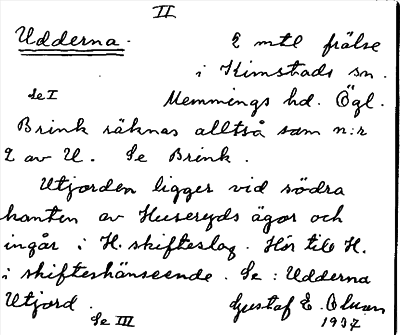 II
Udderna. 2 mtl frälse
i Kimstads sn.
Se I Memmings hd. Ögl.
Brink räknas alltså som n:r
2 av U. Se Brink.
Utjorden ligger vid södra
kanten av Husereyds ägor och
ingår i H. skifteslag. Hör till H.
i skifteshänseende. Se: Udderna
Utjord. Gustaf E. Olsson
Se III 1937